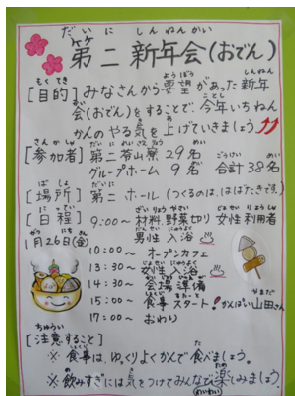 第二 新年会(おでん)
[目的] みなさんから要望があった新年
会(おでん)をすることで、今年いちねん
かんのやる気を上げていきましょう
[参加者] 第二 苔山寮 29名
グループホーム 9名 合計38名
[場所] 第二 ホール (つくるのは、ははたきです。)
[日程] 9:00〜 材料、野菜切り 女性利用者
1月26日(金) 男性入浴
10:00〜 オープンカフェ
13:30〜 女性入浴
14:30〜 会場準備
15:00〜 食事スタート! かんぱい山田さん
17:00〜 おわり
[注意すること]
※ 食事は、ゆっくりよくかんで食べましょう。
※ 飲みすぎには気をつけてみんなで楽しみましょう。